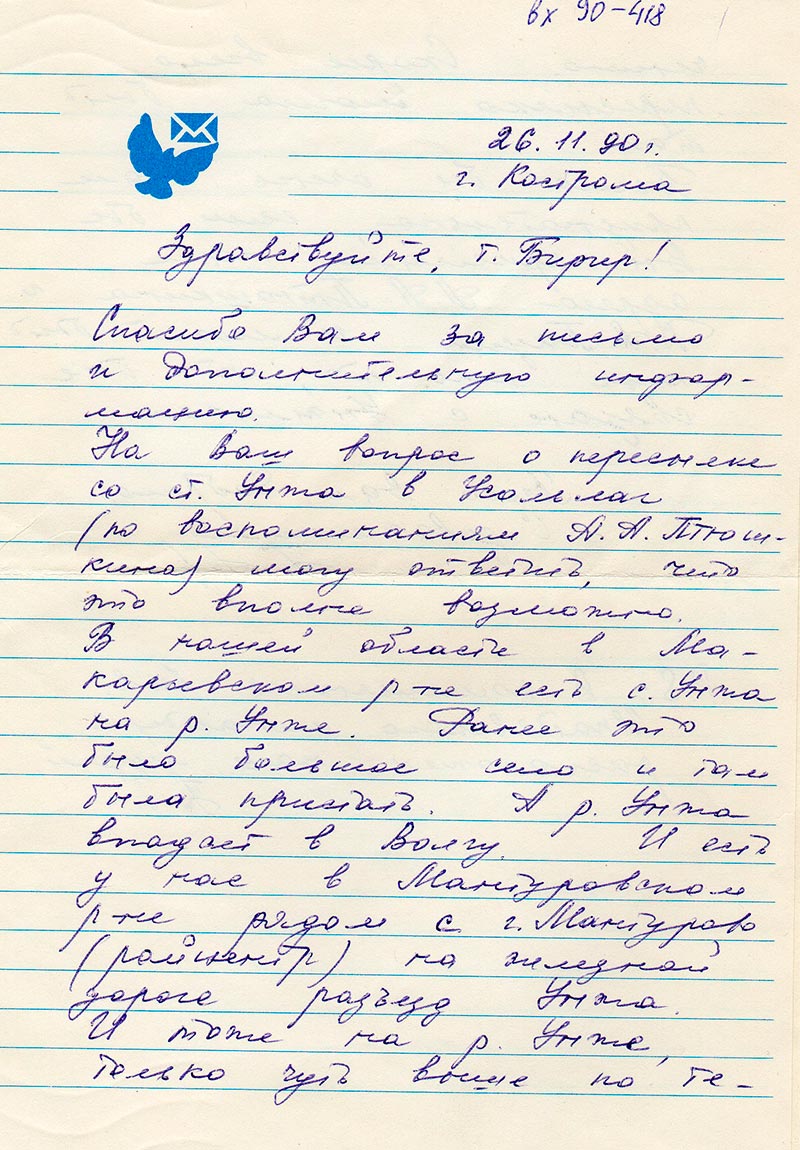 вх 90-418
26.11.90 г.
г. Кострома
Здравствуйте, т. Биргер!
Спасибо Вам за письмо
и дополнительную инфор-
мацию.
На Ваш вопрос о пересылке
со ст. Унжа в Усольлаг
(по воспоминаниям А.А. Птюш-
кина) могу ответить, что
это вполне возможно.
В нашей области в Ма-
карьевском р-не есть с. Унжа
на р. Унже. Ранее это
было большое село и там
была пристань. А р. Унжа
впадает в Волгу. И есть
у нас в Мантуровском
р-не рядом с г. Мантурово
(райцентр) на железной
дороге разъезд Унжа.
И тоже на р. Унже,
только чуть выше по те-